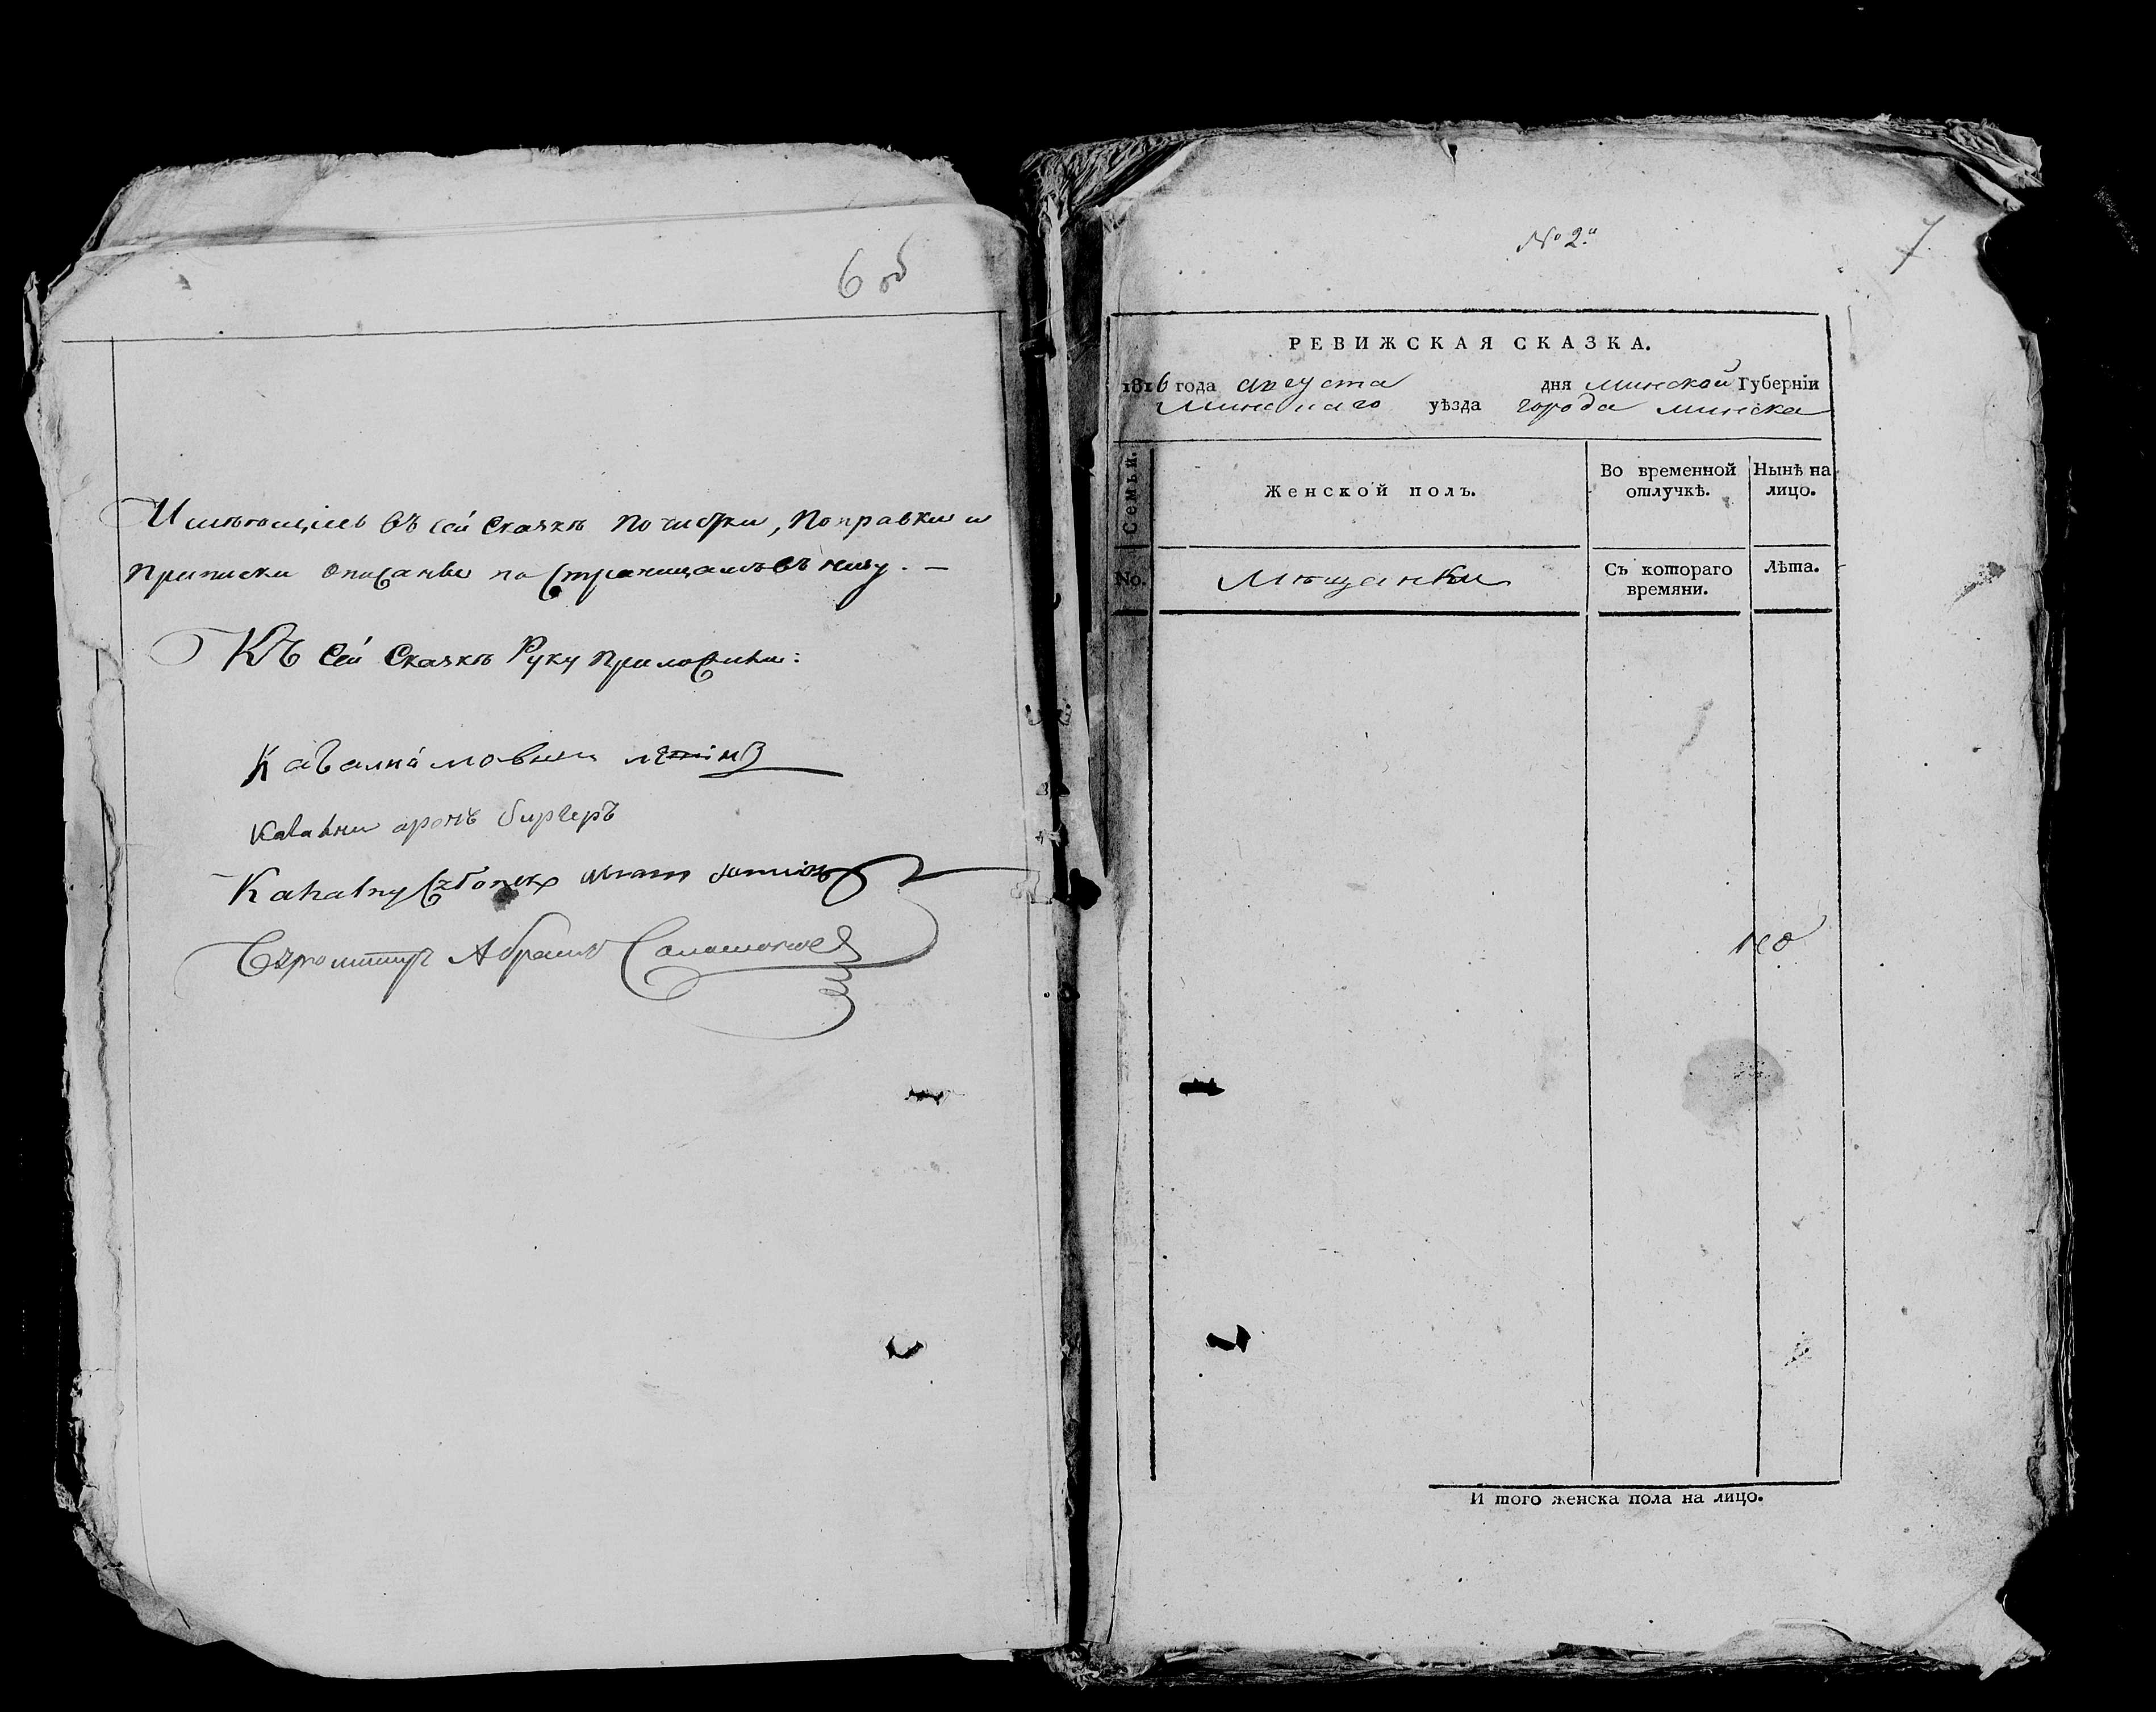 6 об
Имѣющіесь въ сей Сказкѣ почистки, поправки и
приписки описаны по страницамъ въ низу. —
Къ сей Сказкѣ Руку приложили:
аронъ
Kahalny
Абрамъ
№ 2й
7
РЕВИЖСКАЯ СКАЗКА.
1816 года августа дня минской Губерніи
Минскаго уѣзда города минска
Семьи.
Женской полъ.
Во временной отлучкѣ.
Нынѣ на лицо.
No.
Мѣщанки
Съ котораго времяни.
Лѣта.
И того женска пола на лицо.